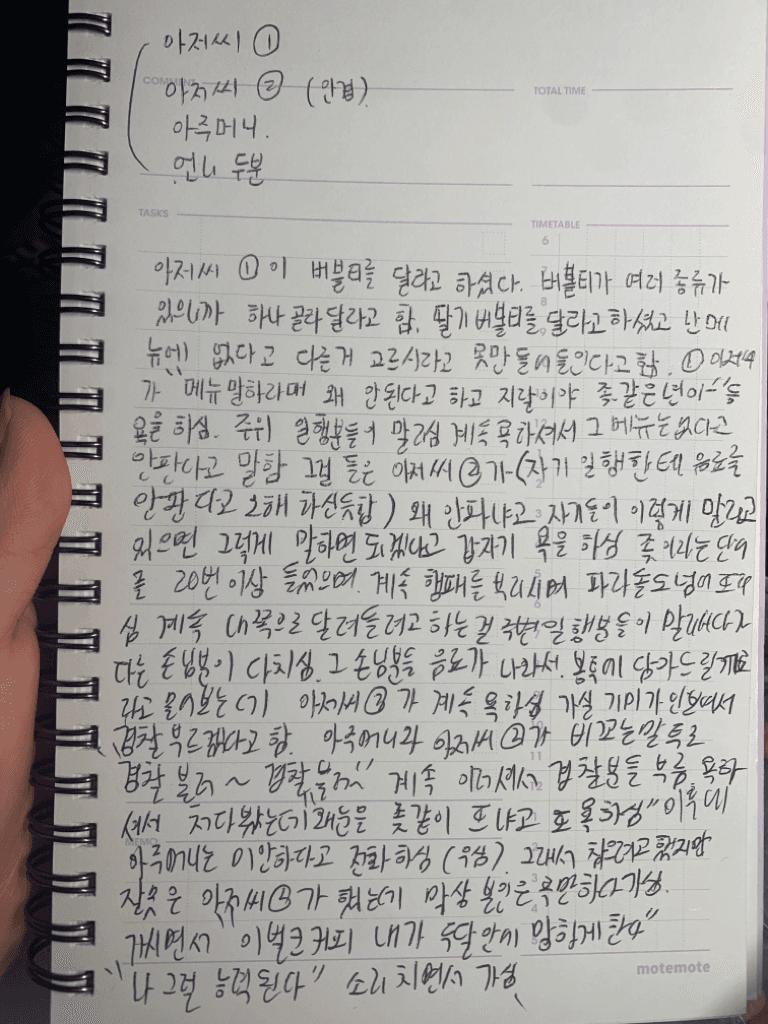 아저씨 ①
COMMENT
아저씨 ② (안경)
TOTAL TIME
아주머니.
언니 두분
TASKS
TIMETABLE
6
아저씨 ①이 버블티를 달라고 하셨다. 버블티가 여러 종류가
있으니까 하나 골라달라고 함. 딸기버블티를 달라고하셨고 난 메
뉴에 없다고 다른거 고르시라고 못만들어드린다고함. ① 아저씨
가 "메뉴말하라며 왜 안된다고 하고 지랄이야 좆같은년이~" 등
욕을 하심. 주위 일행분들이 말리심 계속욕하셔서 그 메뉴는없다고
안판다고 말함 그걸 들은 아저씨②가 (자기 일행한테 음료를
안판다고 오해 하신듯함) 왜 안파냐고 자기들이 이렇게 말리고
있으면 그렇게 말하면 되겠냐고 갑자기 욕을 하심 좆이라는단어
를 20번이상 들었으며. 계속 행패를부리시며 파라솔도넘어트리
심 계속 내쪽으로 달려들려고 하는걸 주변일행분들이 말리다가
다른 손님분이 다치심. 그 손님분들 음료가 나와서. 봉투에 담아드릴게요
라고 물어보는데 아저씨② 가 계속 욕하심 가실 기미가 안보여서
경찰부르겠다고 함. 아주머니와 아저씨②가 비꼬는말투로
경찰 불러~ 경찰불러~" 계속 이러셔서 경찰분들 부름 욕하
셔서 쳐다봤는데 왜눈을 좆같이 뜨냐고 또 욕하심" 이후에
아주머니는 미안하다고 전화하심 (우심). 그래서 참으려고했지만
MEMO
잘못은 아저씨②가 했는데 막상 본인은 욕만하다가심.
가시면서 "이벌크커피 내가 두달안에 망하게한다"
"나 그럴 능력된다" 소리치면서 가심
motemote